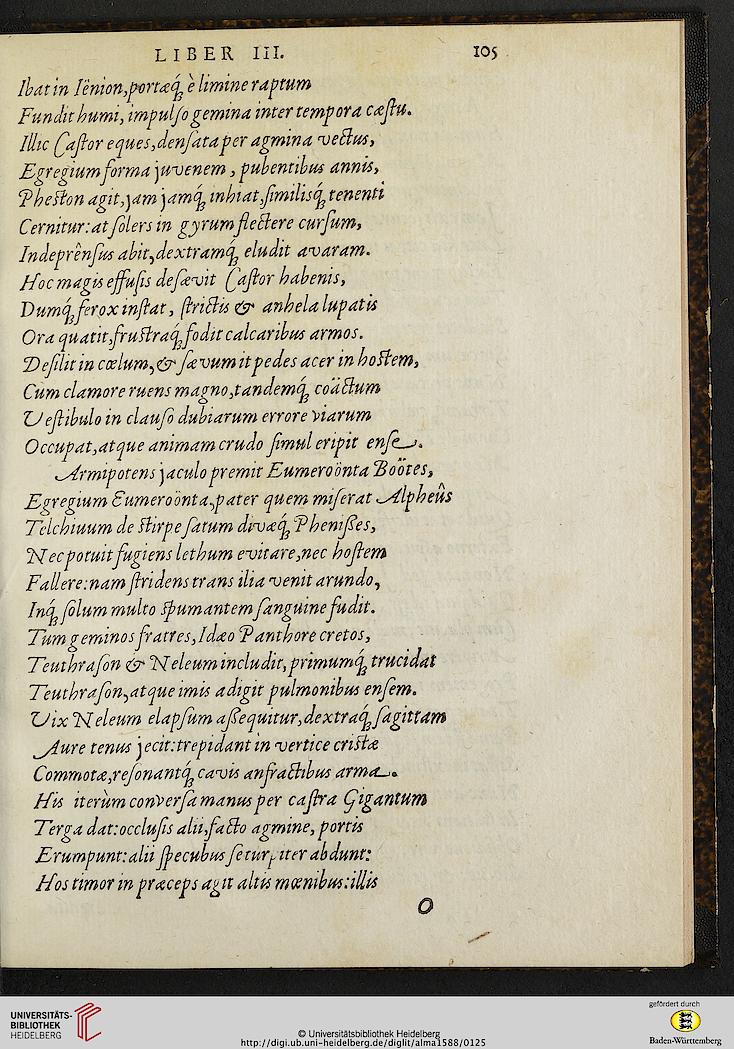 LIBER III. 105
Ibat in Iënion, portæq́ꝫ è limine raptum
Fundit humi, impulſo gemina inter tempora cæſtu.
Illic Caſtor eques, denſata per agmina vectus,
Egregium forma juvenem, pubentibus annis,
Pheston agit, jam jamq́ꝫ inhiat, ſimilisq́ꝫ tenenti
Cernitur: at ſolers in gyrum flectere curſum,
Indeprênſus abit, dextramq́ꝫ eludit avaram.
Hoc magis effuſis deſævit Caſtor habenis,
Dumq́ꝫ ferox inſtat, ſtrictis & anhela lupatis
Ora quatit, fruſtraq́ꝫ fodit calcaribus armos.
Deſilit in cœlum, & ſævum it pedes acer in hostem,
Cum clamore ruens magno, tandemq́ꝫ coäctum
Veſtibulo in clauſo dubiarum errore viarum
Occupat, atque animam crudo ſimul eripit enſe.
Armipotens jaculo premit Eumeroönta Boötes,
Egregium Eumeroönta, pater quem miſerat Alpheûs
Telchiuum de stirpe ſatum divæq́ꝫ Phenißes,
Nec potuit fugiens lethum evitare, nec hoſtem
Fallere: nam ſtridens trans ilia venit arundo,
Inq́ꝫ ſolum multo spumantem ſanguine fudit.
Tum geminos fratres, Idæo Panthore cretos,
Teuthraſon & Neleum includit, primumq́ꝫ trucidat
Teuthraſon, atque imis adigit pulmonibus enſem.
Vix Neleum elapſum aßequitur, dextraq́ꝫ ſagittam
Aure tenus jecit: trepidant in vertice cristæ
Commotæ, reſonantq́ꝫ cavis anfractibus arma.
His iterùm converſa manus per caſtra Gigantum
Terga dat: occluſis alii, facto agmine, portis
Erumpunt: alii ſpecubus ſe turpiter abdunt:
Hos timor in præceps agit altis mœnibus: illis
O
UNIVERSITÄTS-
BIBLIOTHEK
HEIDELBERG
© Universitätsbibliothek Heidelberg
http://digi.ub.uni-heidelberg.de/diglit/alma1588/0125
gefördert durch
Baden-Württemberg